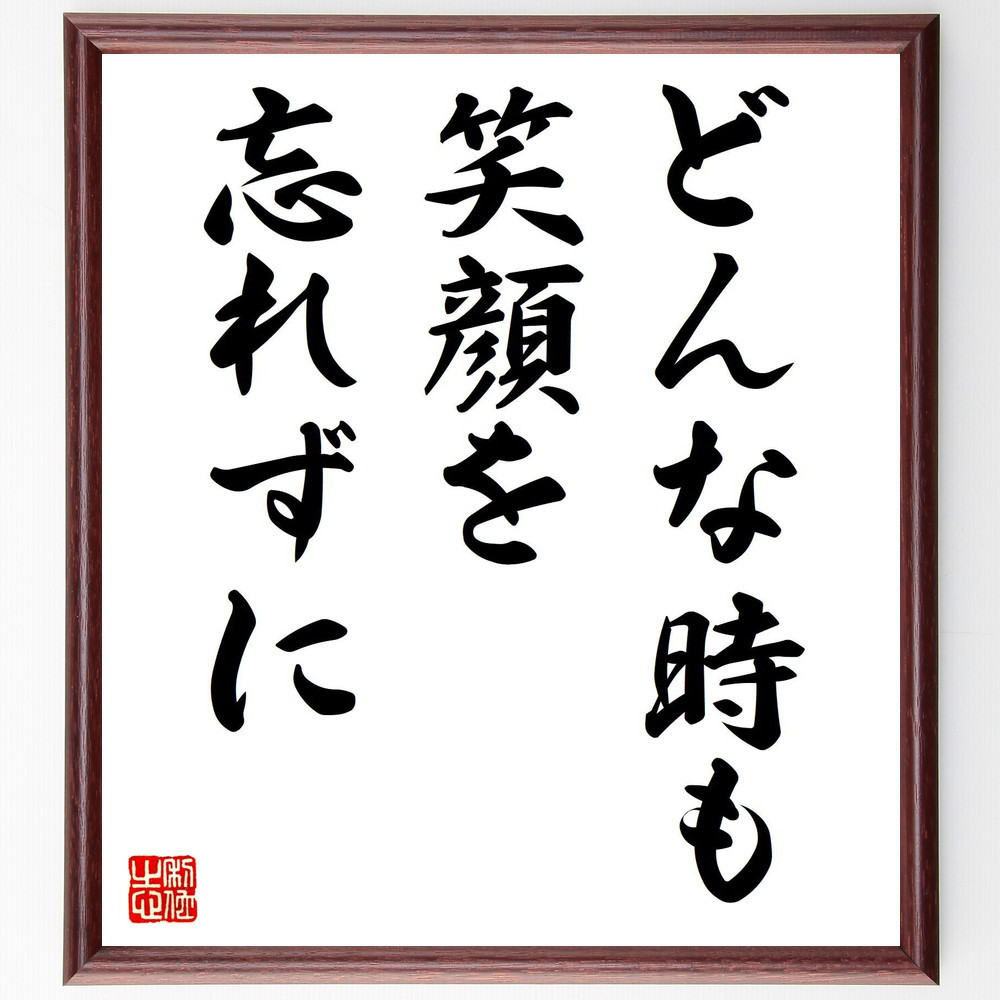 どんな時も
笑顔を
忘れずに